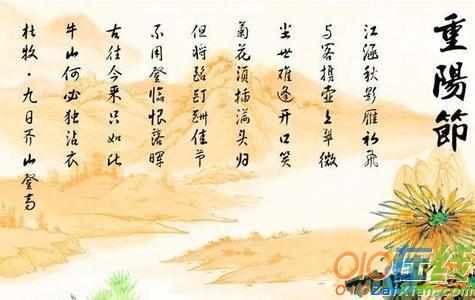 重陽節
江涵秋影雁初飛
与客携壶上翠微
尘世难逢开口笑
菊花须插满头归
但将酩酊酬佳节
不用登临恨落晖
古往今来只如此
牛山何必独沾衣
杜牧·九日齐山登高
010在线
010zaixian.com